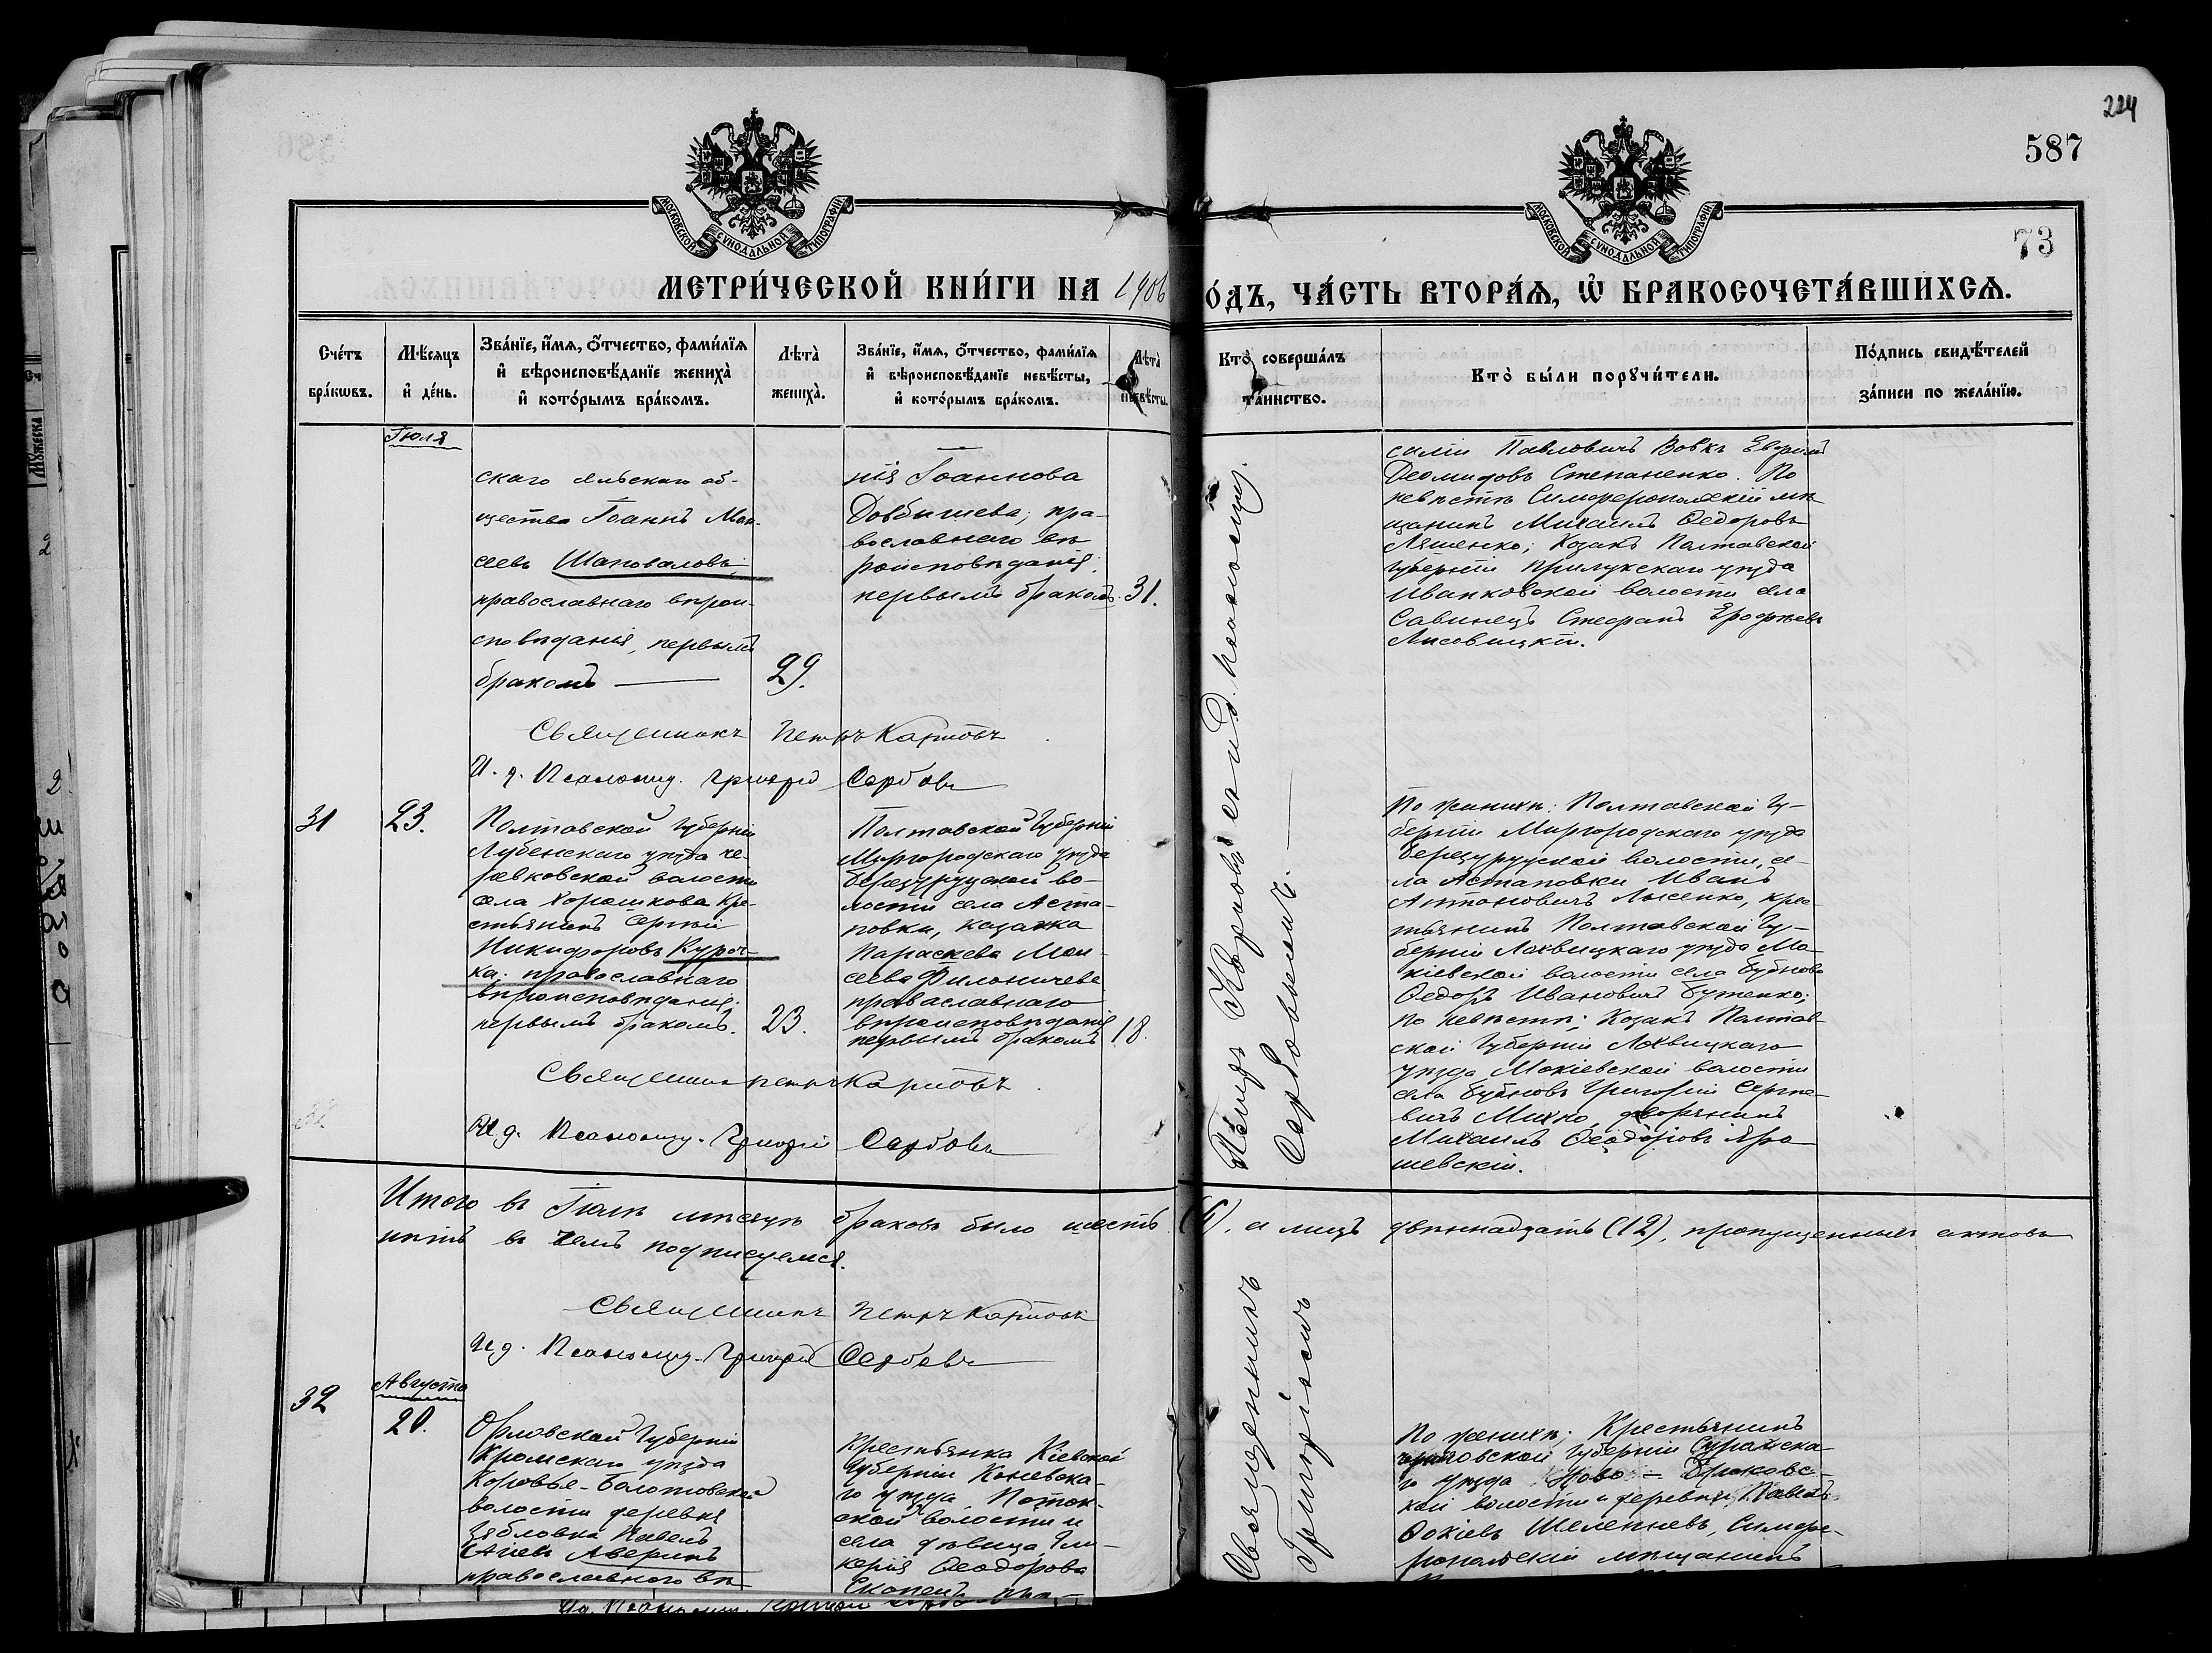 224
587
73
МОСКОВСКОЙ СѴНОДАЛЬНОЙ ТИПОГРАФІИ
МОСКОВСКОЙ СѴНОДАЛЬНОЙ ТИПОГРАФІИ
МЕТРИ́ЧЕСКОЙ КНИ́ГИ НА 1906
О́ДЪ, ЧА́СТЬ ВТОРА́Ѧ, Ѽ БРАКОСОЧЕТА́ВШИХСѦ.
Сче́тъ
бра́кѡвъ.
Мѣ́сяцъ
и҆ де́нь.
Зва́нїе, и҆́мѧ, ѻ҆́тчество, фами́лїѧ
и҆ вѣроисповѣ́данїе жениха̀
и҆ кото́рымъ бра́комъ.
Лѣта̀
жениха̀.
Зва́нїе, и҆́мѧ, ѻ҆́тчество, фами́лїѧ
и҆ вѣроисповѣ́данїе невѣ́сты,
и҆ кото́рымъ бра́комъ.
Лѣта̀
невѣ́сты.
Кто̀ соверша́лъ
та́инство.
Кто̀ бы́ли порꙋчи́тели.
По́дпись свидѣ́телей
за́писи по жела́нїю.
Іюля
скаго сельскаго об-
щества Іоаннъ Мои-
сеевъ Шаповаловъ,
православнаго вѣрои-
сповѣданія, первымъ
бракомъ
29.
нія Іоаннова
Довбышева, пра-
вославнаго вѣ
роисповѣданія,
первымъ бракомъ.
31.
силій Павловичъ Вовкъ Евфимій
Деомидовъ Степаненко. По
невѣстѣ Симферопольскій мѣ
щанинъ Михаилъ Ѳедоровъ
Ляшенко; Козакъ Полтавской
губерніи Прилукскаго уѣзда
Иванковской волости села
Савинецъ Стефанъ Ерофѣевъ
Лисовицкій.
Священникъ Петръ Карповъ
И. д. Псаломщ. Григорій Сербовъ
31
23.
Полтавской Губерніи
Лубенскаго уѣзда
волости
села Хорошкова Кре-
стьянинъ Сергѣй
Никифоровъ Куроч-
ка; православнаго
вѣроисповѣданія;
первымъ бракомъ.
23.
Полтавской Губерніи
Миргородскаго уѣзда
Березурудской во-
лости села Аста-
повки, казачка
Параскева Мои-
сеева Филоничева
православнаго
вѣроисповѣданія
первымъ бракомъ
18.
По женихѣ: Полтавской Гу-
берніи Миргородскаго уѣзда
Березурудской волости, се-
ла Астаповки Иванъ
Антоновичъ Лысенко, крес-
тьянинъ Полтавской Гу-
берніи Лохвицкаго уѣзда Мо-
кіевской волости села Бубновъ
Ѳедоръ Ивановичъ Бутенко;
по невѣстѣ; Козакъ Полтав-
ской Губерніи Лохвицкаго
уѣзда Мокіевской волости
села Бубновъ Григорій Серге-
вичъ Михно, дворянинъ
Михаилъ Ѳеодоровъ Яро
шевскій.
Священникъ Петръ Карповъ
И. д. Псаломщ. Григорій Сербовъ
Петръ Карповъ съ и. д. псаломщ.
Сербовымъ.
Итого въ Іюлѣ мѣсяцѣ браковъ было шесть (6), а лицъ двѣнадцать (12), пропущенныхъ актовъ
нѣтъ въ чемъ подписуемся.
Священникъ Петръ Карповъ
И. д. Псаломщ. Григорій Сербовъ
Августа
32
20.
Орловской Губерніи
Кромскаго уѣзда
Коровье-Болотовской
волости деревня
Зябловка Павелъ
Аверинъ
православнаго вѣ-
Крестьянка Кіевской
Губерніи Каневска-
го уѣзда Поток-
ской волости и
села дѣвица Гли-
керія Ѳеодорова
Священникъ
Григоріемъ
По женихѣ; Крестьянинъ
Черниговской Губерніи Суражска-
го уѣзда Ново-
кой волости и деревни Павелъ
Ѳокіевъ Шеленевъ, Симфе-
ропольскій мѣщанинъ